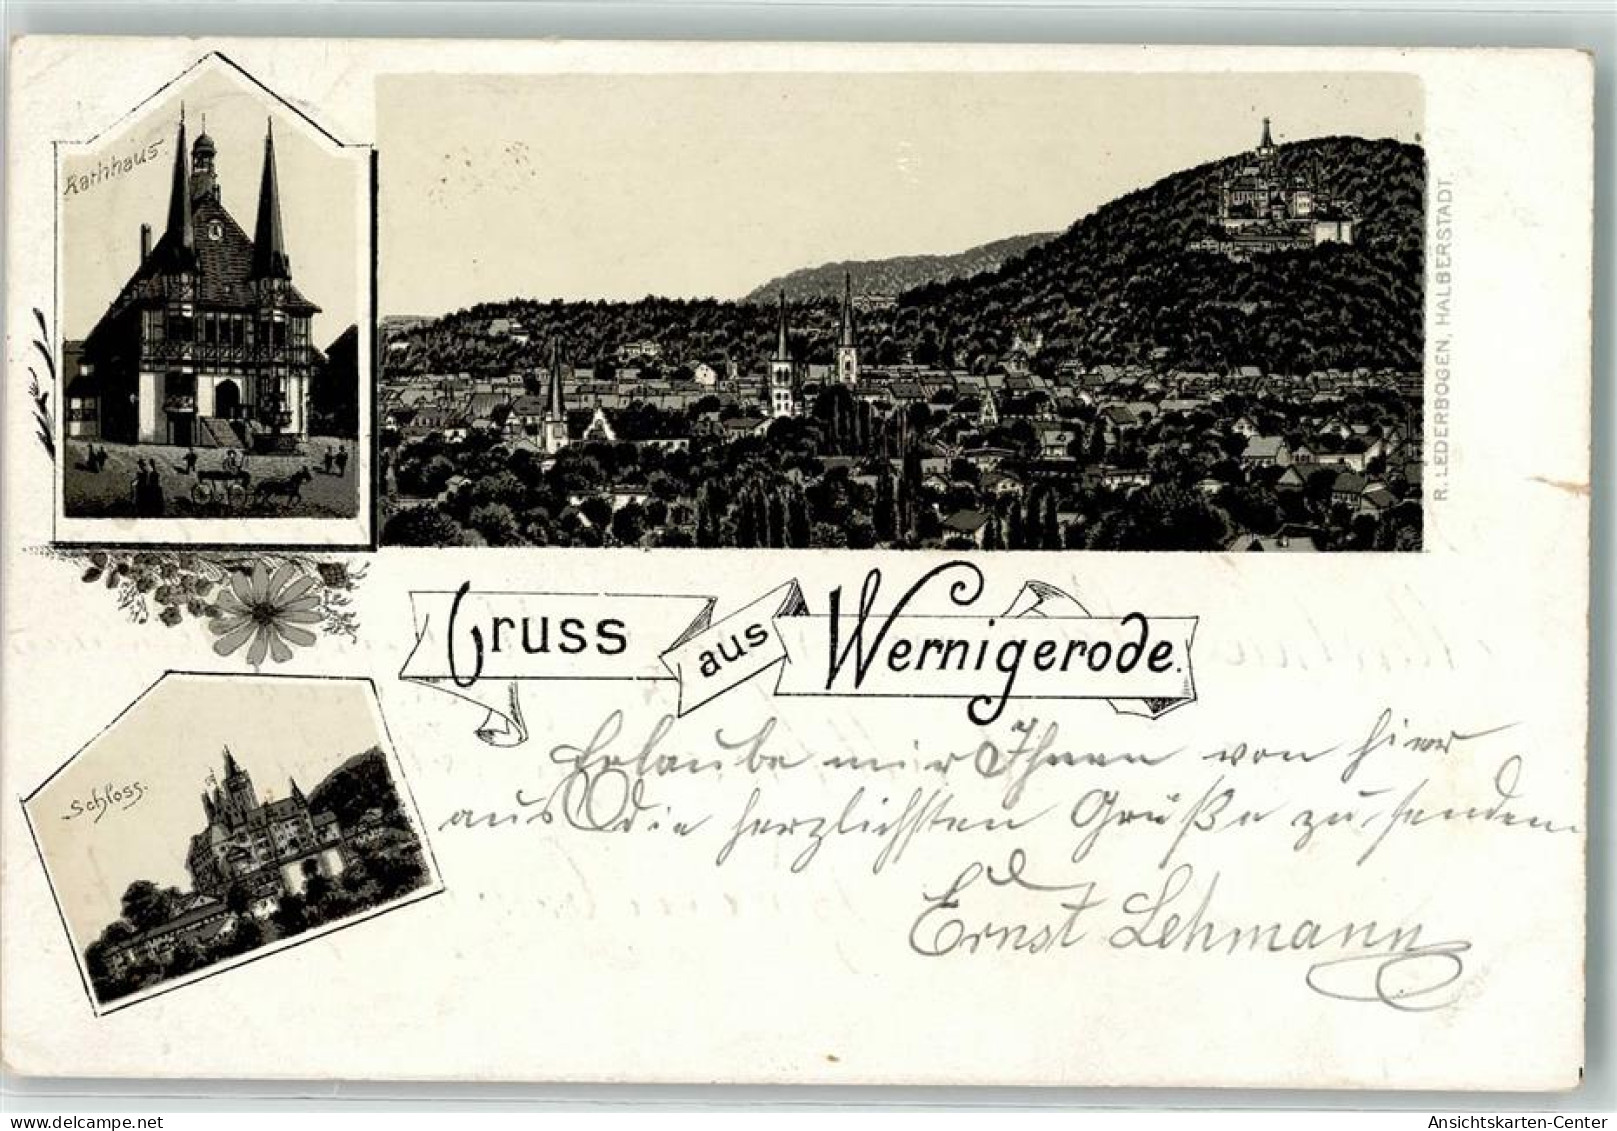 Rathhaus.
R. LEDERBOGEN, HALBERSTADT.
Gruss aus Wernigerode.
Schloss.
Erlaube mir Ihnen von hier
aus die herzlichsten Grüße zu senden
Ernst Lehmann
AnsichtsKarten-Center